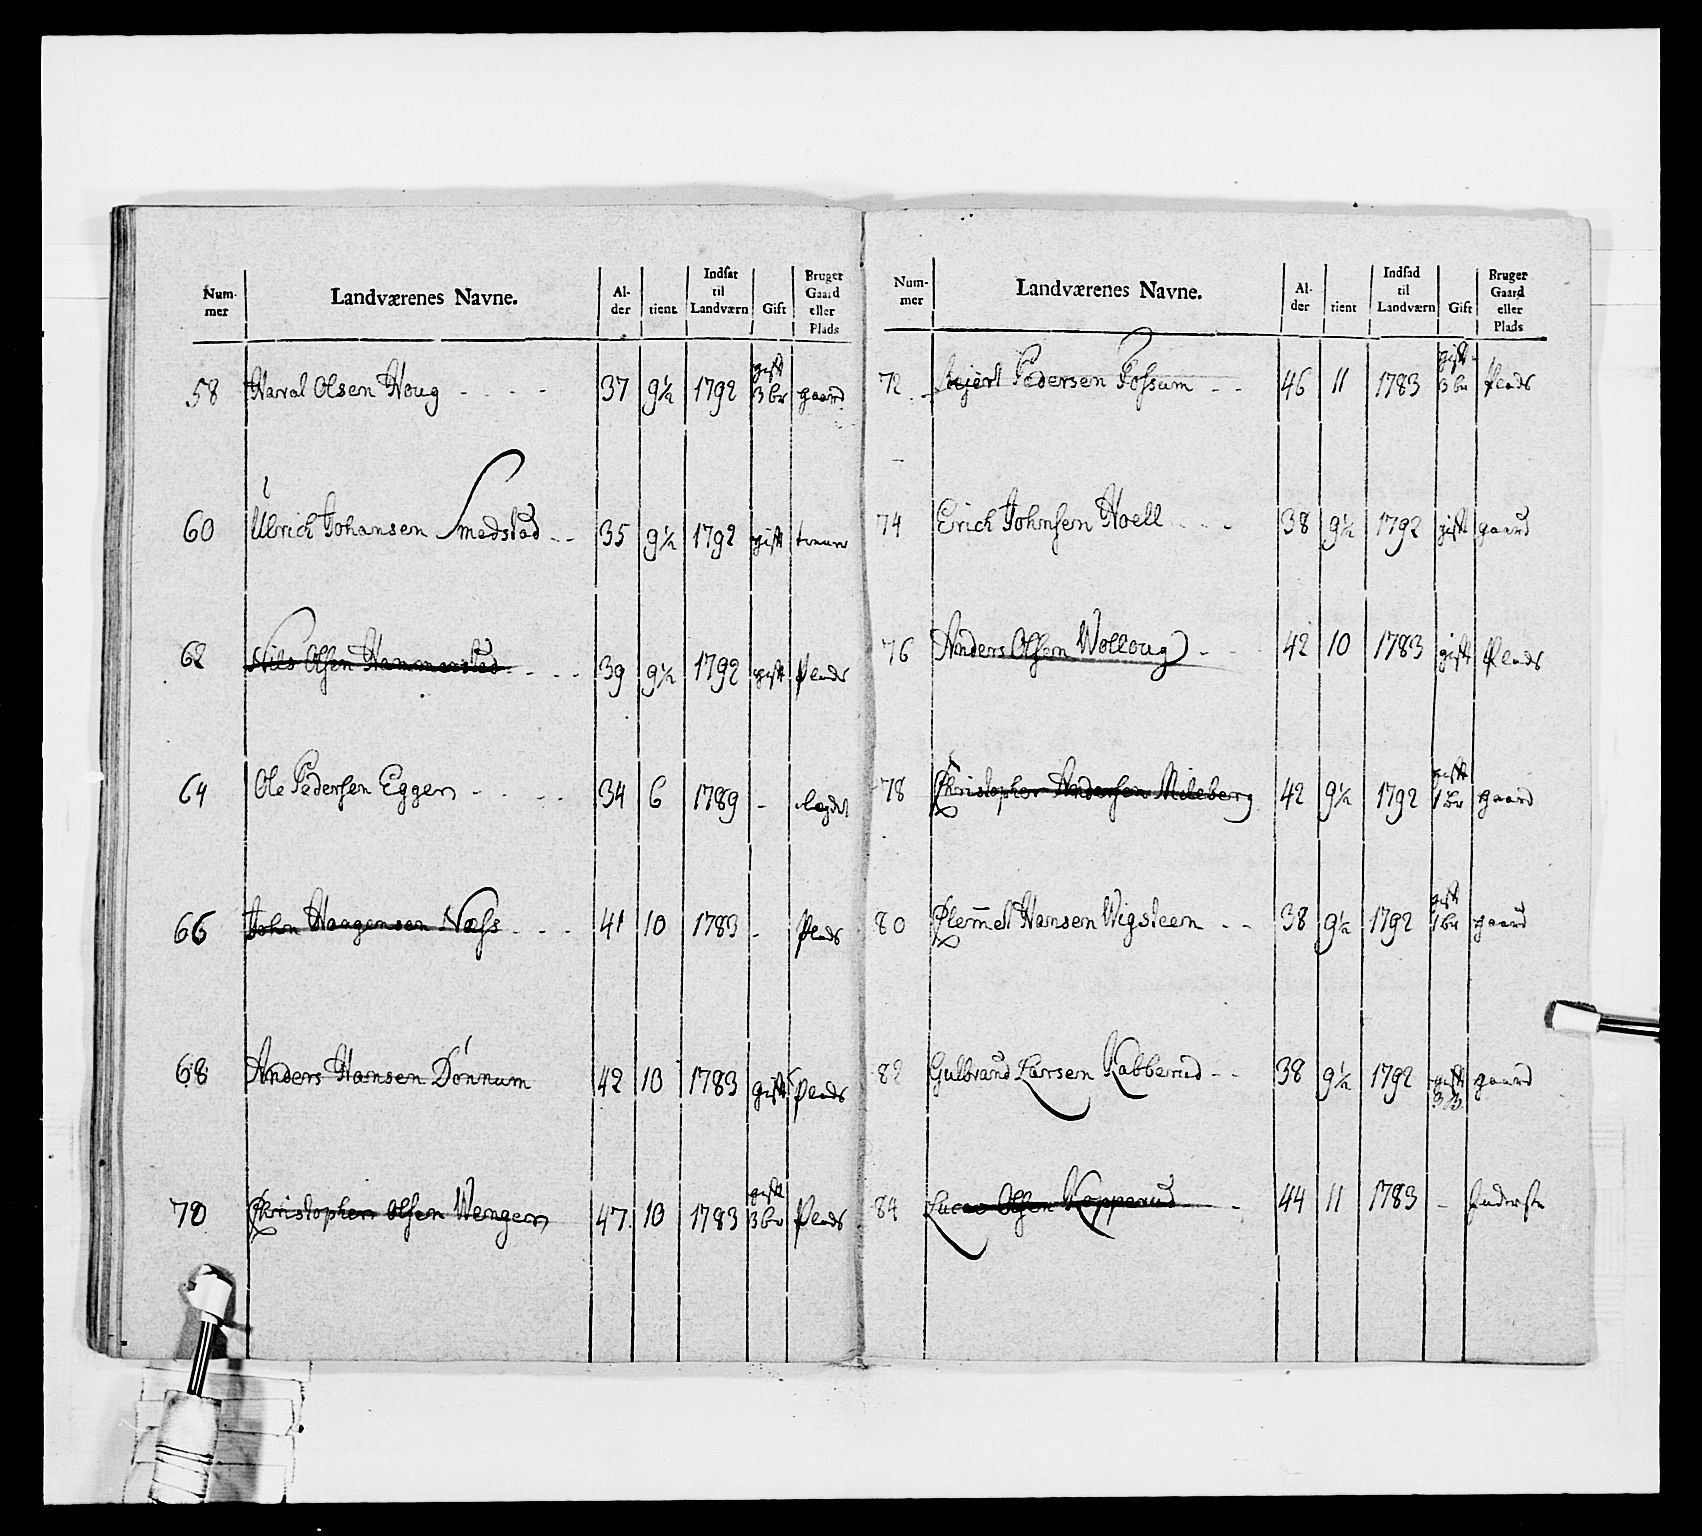 Num-
mer
Landværenes Navne.
Al-
der
tient
Indsat
til
Landværn
Gift
Bruger
Gaard
eller
Plads
58 Haral Olsen Houg 37 9½ 1792 gift 3 br gaard
60 Ulrich Johansen Smedstad 35 9½ 1792 gift
62 Nils Olsen Hammerstad 39 9½ 1792 gift Plads
64 Ole Pedersen Eggen 34 6 1789 - Lægdet
66 John Haagensen Næss 41 10 1783 - Plads
68 Anders Hansen Dønnum 42 10 1783 gift Plads
70 Christopher Olsen Wengen 47 10 1783 gift 3 br Plads
Num-
mer
Landværenes Navne.
Al-
der
tient
Indsad
til
Landværn
Gift
Bruger
Gaard
eller
Plads
72 Pedersen Fossum 46 11 1783 gift 3 br Plads
74 Erich Johnsen Hoell 38 9½ 1792 gift gaard
76 Anders Olsen Wolloug 42 10 1783 gift Plads
78 Christopher Andersen Mileberg 42 9½ 1792 gift 1 br gaard
80 Clemet Hansen Wigsteen 38 9½ 1792 gift 1 br gaard
82 Gulbrand Larsen Kabberud 38 9½ 1792 gift 3 B. gaard
84 Lucas Olsen Kopperud 44 11 1783 -